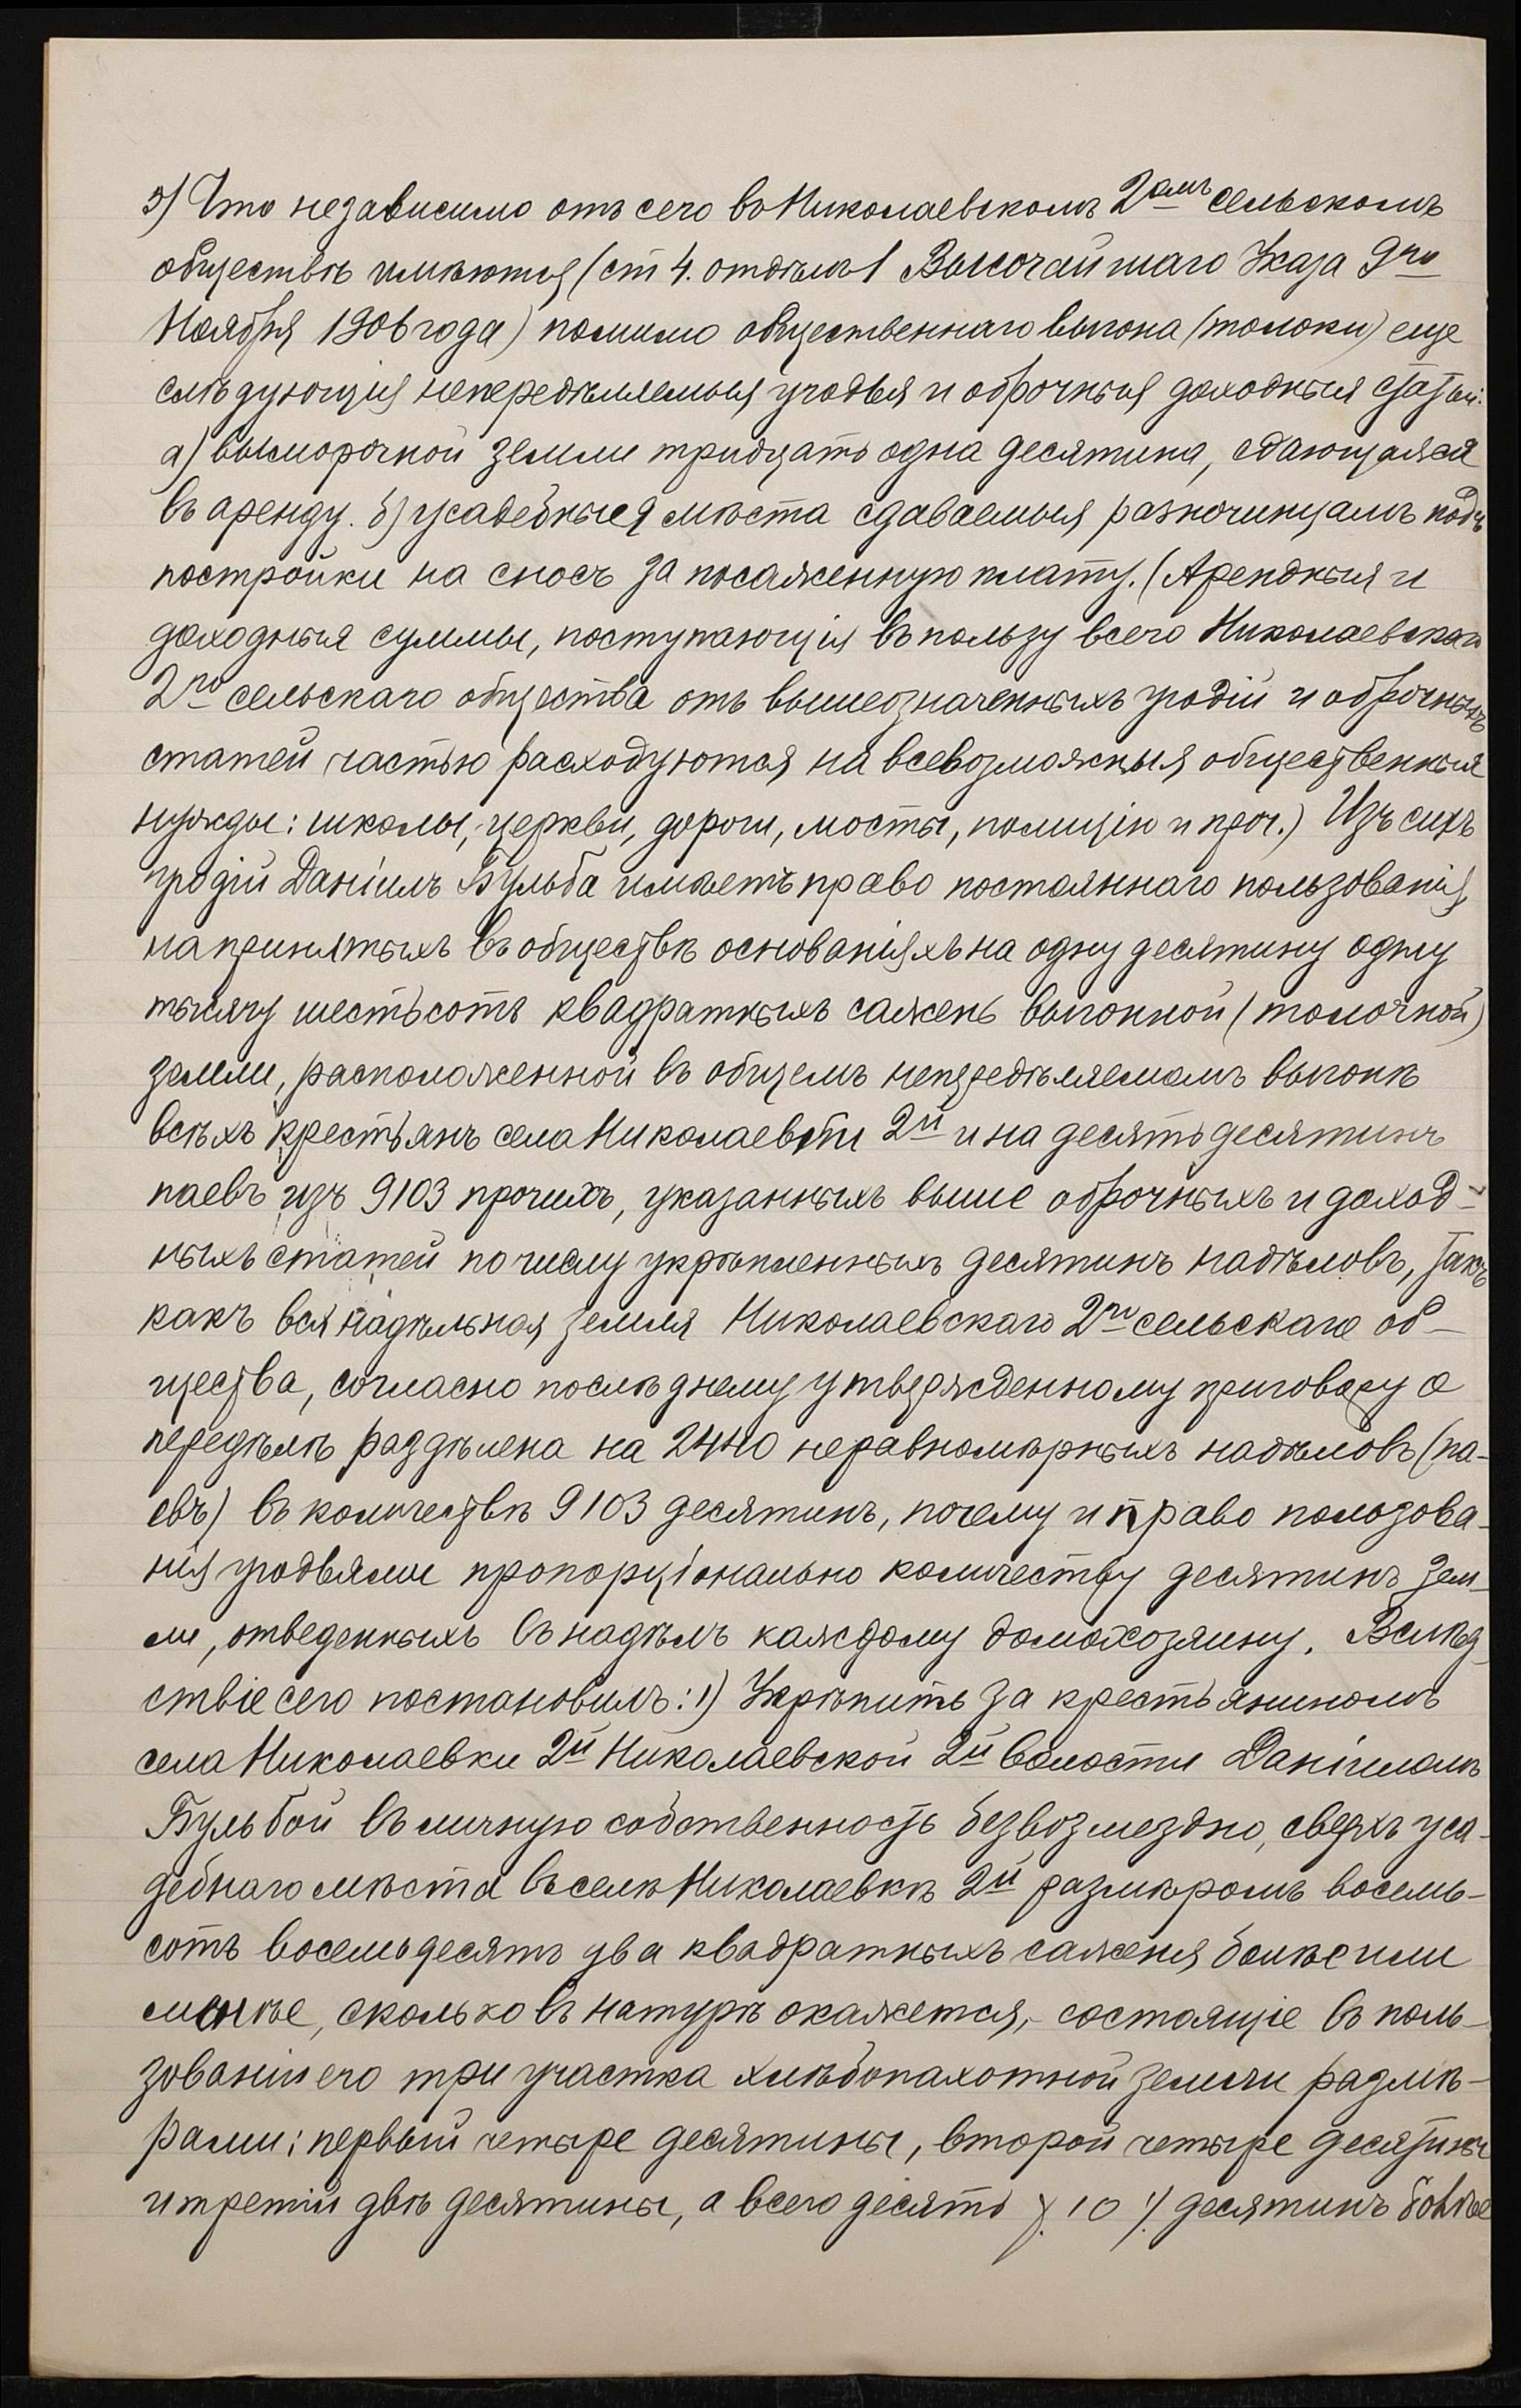 5) Что независимо отъ сего въ Николаевскомъ 2омъ сельскомъ
обществѣ имѣются (ст 4. отдѣлъ 1 Высочайшаго Указа 9го
Ноября 1906 года) помимо общественнаго выгона (толоки) еще
слѣдующія непередѣляемыя угодья и оброчныя доходныя статьи:
а) выморочной земли тридцать одна десятина, сдающаяся
въ аренду. б) усадебныя мѣста сдаваемыя разночинцамъ подъ
постройки на сносъ за посаженную плату. (Арендныя и
доходныя суммы, поступающія въ пользу всего Николаевскаго
2го сельскаго общества отъ вышеозначенныхъ угодій и оброчныхъ
статей частью расходуются на всевозможныя общественныя
нужды: школы, церкви, дороги, мосты, полицію и проч.) Изъ сихъ
угодій Даніилъ Бульба имѣетъ право постояннаго пользованія,
на принятыхъ въ обществѣ основаніяхъ на одну десятину одну
тысячу шестьсотъ квадратныхъ сажень выгонной (толочной)
земли, расположенной въ общемъ непередѣляемомъ выгонѣ
всѣхъ крестьянъ села Николаевки 2й и на десять десятинъ
паевъ изъ 9103 прочихъ, указанныхъ выше оброчныхъ и доход-
ныхъ статей по числу укрѣпленныхъ десятинъ надѣловъ, такъ
какъ вся надѣльная земля Николаевскаго 2го сельскаго об-
щества, согласно послѣднему утвержденному приговору о
передѣлѣ раздѣлена на 2440 неравномѣрныхъ надѣловъ (па-
евъ) въ количествѣ 9103 десятинъ, почему и право пользова-
нія угодьями пропорціонально количеству десятинъ зем-
ли, отведенныхъ въ надѣлъ каждому домохозяину. Вслѣд-
ствіе сего постановилъ: 1) Укрѣпить за крестьяниномъ
села Николаевки 2й Николаевской 2й волости Даніиломъ
Бульбой въ личную собственность безвозмездно, сверхъ уса-
дебнаго мѣста въ селѣ Николаевкѣ 2й размѣромъ восемь-
сотъ восемьдесятъ два квадратныхъ саженя болѣе или
менѣе, сколько въ натурѣ окажется,- состоящіе въ поль-
зованіи его три участка хлѣбопахотной земли размѣ-
рами: первый четыре десятины, второй четыре десятины
и третій двѣ десятины, а всего десять /. 10 ./ десятинъ болѣе